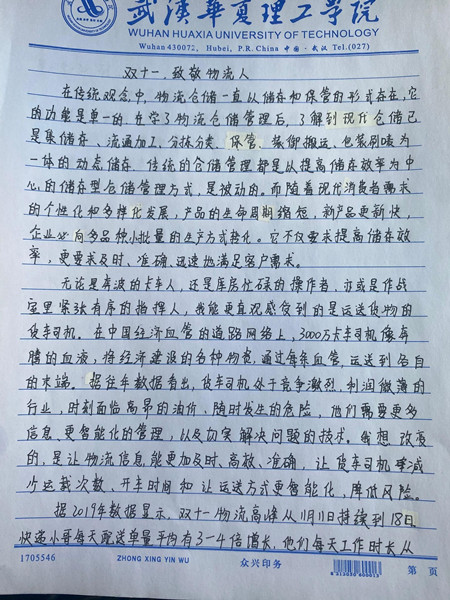 武汉华夏理工学院
WUHAN HUAXIA UNIVERSITY OF TECHNOLOGY
Wuhan 430072, Hubei, P.R. China 中国·武汉 Tel.(027)
双十一,致敬物流人
在传统观念中,物流仓储一直以储存和保管的形式存在,它
的功能是单一的。在学了物流仓储管理后,了解到现代仓储已
是集储存、流通加工、分拣分类、保管、装卸搬运、包装刷唛为
一体的动态储存。传统的仓储管理都是以提高储存效率为中
心的储存型仓储管理方式,是被动的。而随着现代消费者需求
的个性化和多样化发展,产品的生命周期缩短,新产品更新快,
企业必向多品种小批量的生产方式转化。它不仅要求提高储存效
率,更要求及时、准确、迅速地满足客户需求。
无论是奔波的卡车人,还是库房忙碌的操作者,亦或是作战
室里紧张有序的指挥人,我能更直观感受到的是运送货物的
货车司机。在中国经济血管的道路网络上,3000万卡车司机像奔
腾的血液,将经济建设的各种物资,通过每条血管,运送到各自
的末端。据往年数据看出,货车司机处于竞争激烈,利润微薄的
行业,时刻面临高昂的油价、随时发生的危险,他们需要更多
信息、更智能化的管理,以及切实解决问题的技术。我想改变
的,是让物流信息能更加及时、高效、准确,让货车司机减
少运载次数、开车时间和让运送方式更智能化,降低风险。
据2019年数据显示,双十一物流高峰从11月11日持续到18日,
快递小哥每天配送单量平均有3-4倍增长,他们每天工作时长从
1705546 ZHONG XING YIN WU 众兴印务 第 页